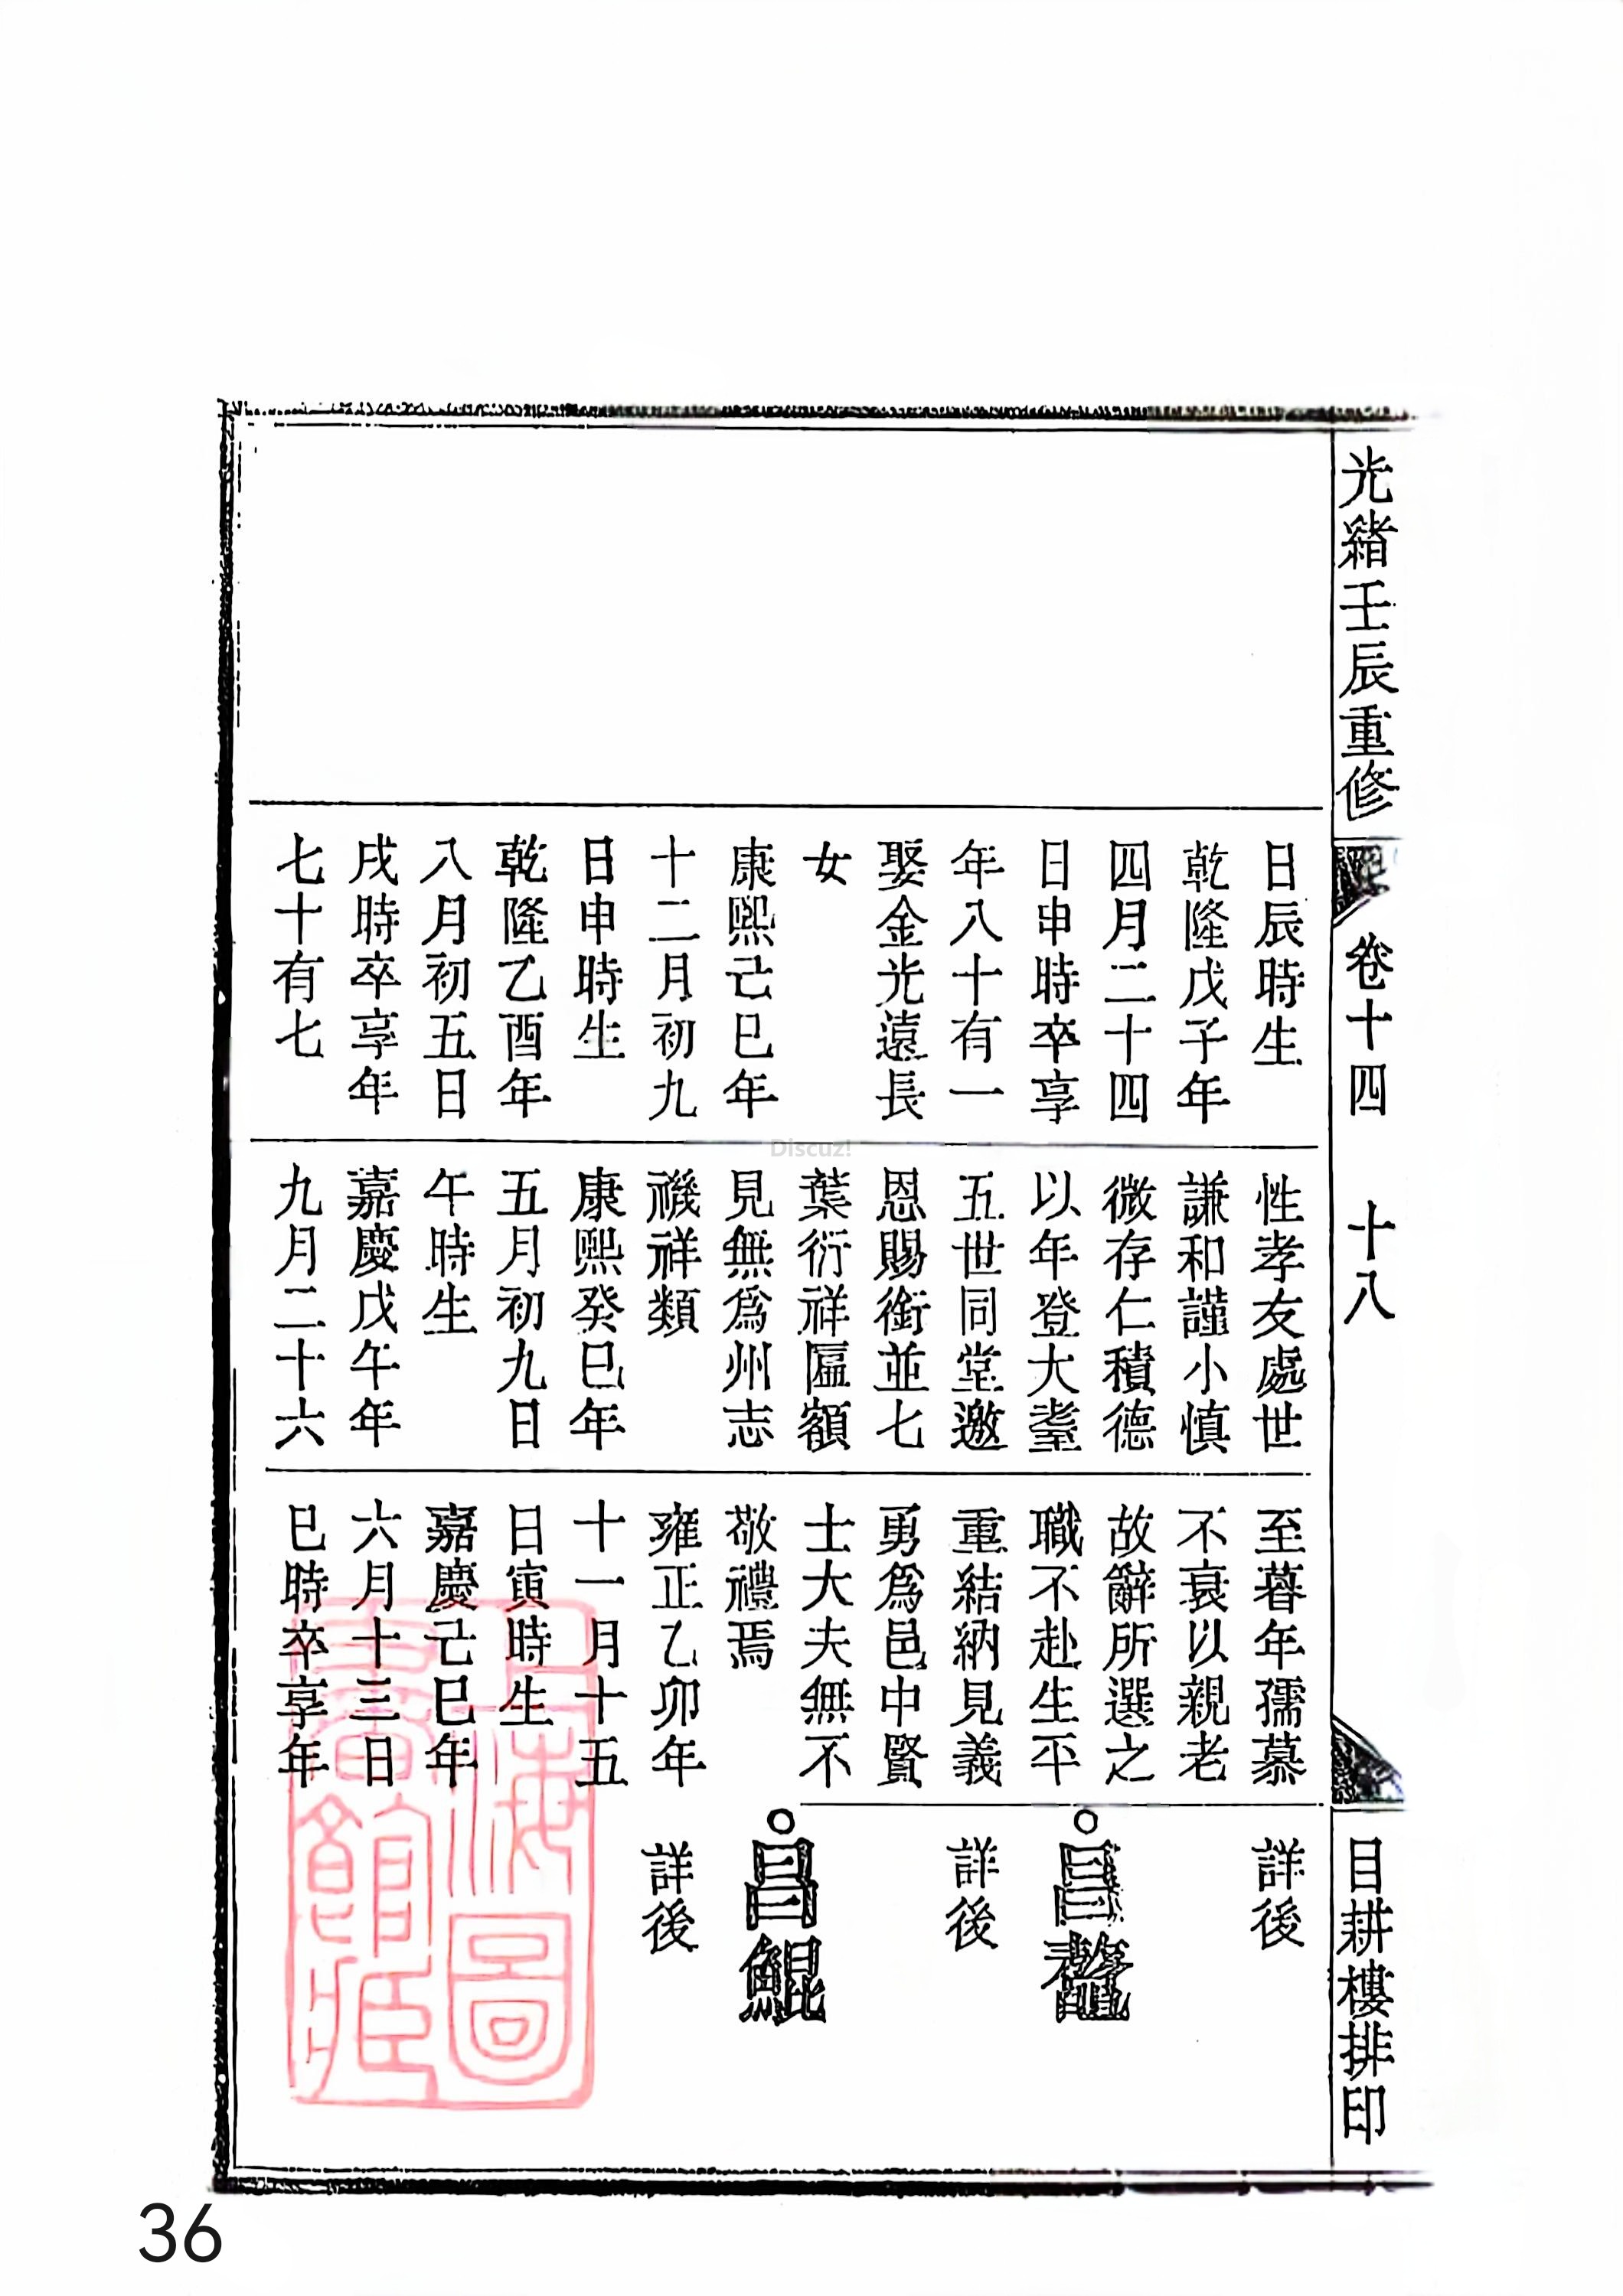 光緒壬辰重修
卷十四
十八
目耕樓排印
日辰時生
乾隆戊子年
四月二十四
日申時卒享
年八十有一
娶金光遠長
女
康熙己巳年
十二月初九
日申時生
乾隆乙酉年
八月初五日
戌時卒享年
七十有七
性孝友處世
謙和謹小慎
微存仁積德
以年登大耋
五世同堂邀
恩賜銜並七
葉衍祥匾額
見無為州志
禨祥類
康熙癸巳年
五月初九日
午時生
嘉慶戊午年
九月二十六
至暮年孺慕
不衰以親老
故辭所選之
職不赴生平
重結納見義
勇為邑中賢
士大夫無不
敬禮焉
雍正乙卯年
十一月十五
日寅時生
嘉慶己巳年
六月十三日
巳時卒享年
詳後
昌
詳後
昌鯤
詳後
上海圖
書館藏
Discuz!
36